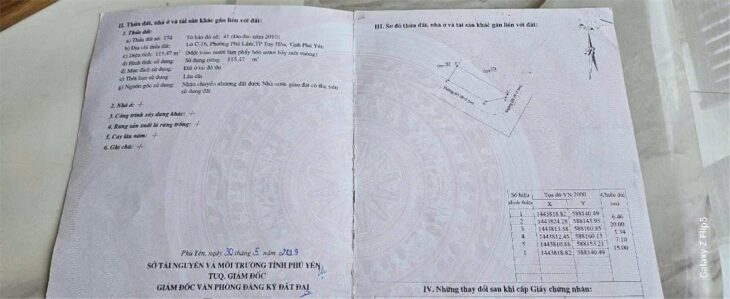 II. Thửa đất, nhà ở và tài sản khác gắn liền với đất:
1. Thửa đất:
a) Thửa đất số: 374 Tờ bản đồ số: 41 (Đo đạc năm 2010)
b) Địa chỉ thửa đất: Lô C-26, Phường Phú Lâm, TP Tuy Hòa, Tỉnh Phú Yên
c) Diện tích: 115,47 m² (Một trăm mười lăm phẩy bốn mươi bảy mét vuông)
d) Hình thức sử dụng: Sử dụng riêng: 115,47 m²
đ) Mục đích sử dụng: Đất ở tại đô thị
e) Thời hạn sử dụng: Lâu dài
g) Nguồn gốc sử dụng: Nhận chuyển nhượng đất được Nhà nước giao đất có thu tiền
sử dụng đất
2. Nhà ở: -/-
3. Công trình xây dựng khác: -/-
4. Rừng sản xuất là rừng trồng: -/-
5. Cây lâu năm: -/-
6. Ghi chú: -/-
Phú Yên, ngày 30 tháng 5 năm 2019
SỞ TÀI NGUYÊN VÀ MÔI TRƯỜNG TỈNH PHÚ YÊN
TUQ. GIÁM ĐỐC
GIÁM ĐỐC VĂN PHÒNG ĐĂNG KÝ ĐẤT ĐAI
III. Sơ đồ thửa đất, nhà ở và tài sản khác gắn liền với đất:
Số hiệu Tọa độ VN-2000 Chiều dài
đỉnh thửa X Y (m)
1 1443818.82 588140.49
6.46
2 1443824.28 588143.95
20.00
3 1443813.58 588160.85
1.34
4 1443812.45 588160.13
7.10
5 1443810.88 588153.21
15.00
1 1443818.82 588140.49
IV. Những thay đổi sau khi cấp Giấy chứng nhận:
Galaxy Z Flip5